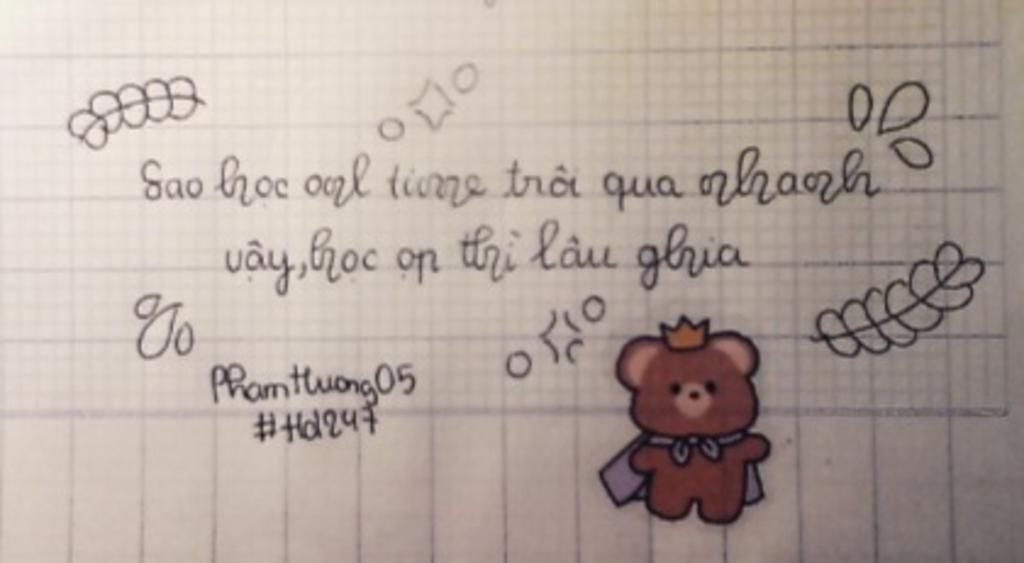 Sao học onl time trôi qua nhanh
vậy,học op thì lâu ghia
PhamHuong05
#Hd247